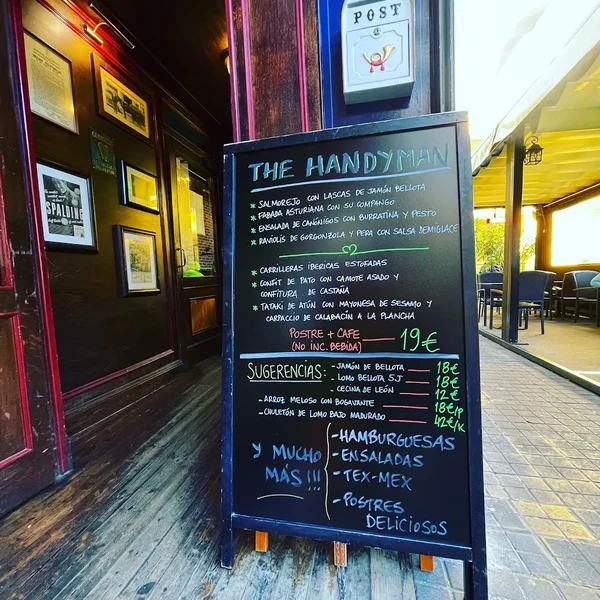 POST
SPALDING
THE HANDYMAN
* SALMOREJO CON LASCAS DE JAMÓN BELLOTA
* FABADA ASTURIANA CON SU COMPANGO
* ENSALADA DE CANÓNIGOS CON BURRATINA Y PESTO
* RAVIOLIS DE GORGONZOLA Y PERA CON SALSA DEMIGLACE
* CARRILLERAS IBERICAS ESTOFADAS
* CONFIT DE PATO CON CAMOTE ASADO Y
CONFITURA DE CASTAÑA
* TATAKI DE ATÚN CON MAYONESA DE SESAMO Y
CARPACCIO DE CALABACÍN A LA PLANCHA
POSTRE + CAFE
(NO INC. BEBIDA) 19€
SUGERENCIAS: - JAMÓN DE BELLOTA 18€
- LOMO BELLOTA 5J 18€
- CECINA DE LEÓN 12€
- ARROZ MELOSO CON BOGAVANTE 18€/P
- CHULETÓN DE LOMO BAJO MADURADO 42€/K
Y MUCHO
MÁS!!!
- HAMBURGUESAS
- ENSALADAS
- TEX-MEX
- POSTRES
DELICIOSOS